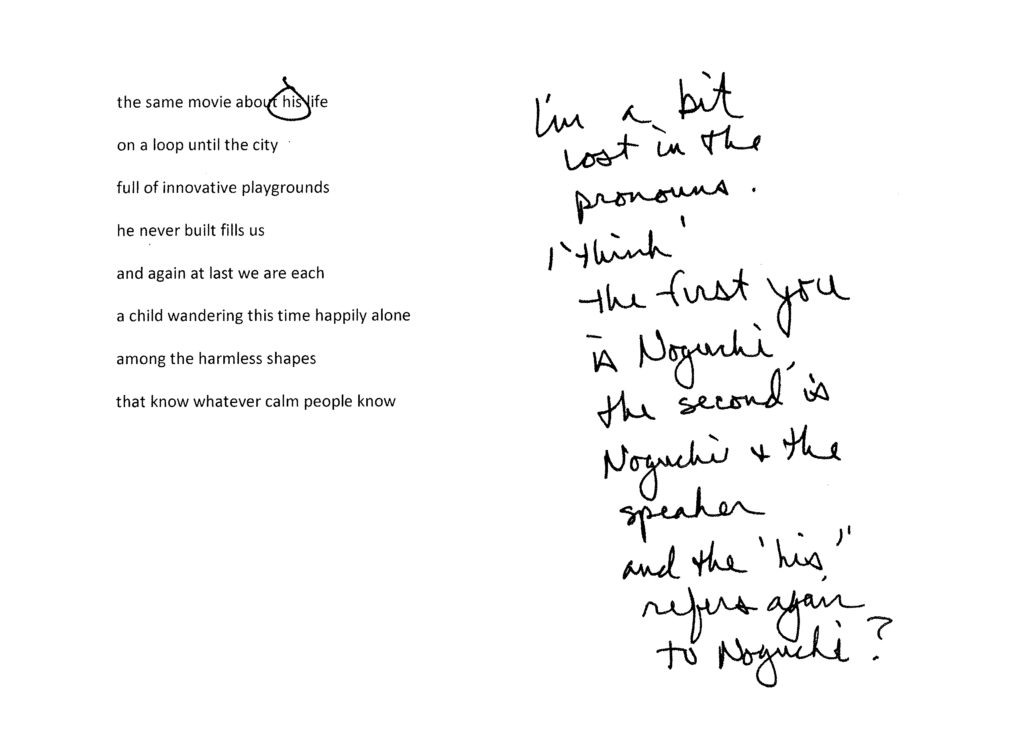 the same movie about his life
on a loop until the city
full of innovative playgrounds
he never built fills us
and again at last we are each
a child wandering this time happily alone
among the harmless shapes
that know whatever calm people know
I'm a bit
lost in the
pronouns.
I 'think'
the first you
is Noguchi,
the second is
Noguchi & the
speaker
and the "his"
refers again
to Noguchi?